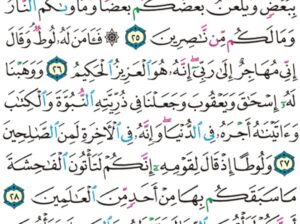 بِبَعْضٍ وَيَلْعَنُ بَعْضُكُم بَعْضًا وَمَأْوَىٰكُمُ ٱلنَّارُ
وَمَالَكُم مِّن نَّٰصِرِينَ ٢٥ ۞ فَـَٔامَنَ لَهُۥ لُوطٌ وَقَالَ
إِنِّي مُهَاجِرٌ إِلَىٰ رَبِّيٓ إِنَّهُۥ هُوَ ٱلْعَزِيزُ ٱلْحَكِيمُ ٢٦ وَوَهَبْنَا
لَهُۥٓ إِسْحَٰقَ وَيَعْقُوبَ وَجَعَلْنَا فِي ذُرِّيَّتِهِ ٱلنُّبُوَّةَ وَٱلْكِتَٰبَ
وَءَاتَيْنَٰهُ أَجْرَهُۥ فِي ٱلدُّنْيَا وَإِنَّهُۥ فِي ٱلْءَاخِرَةِ لَمِنَ ٱلصَّٰلِحِينَ
٢٧ وَلُوطًا إِذْ قَالَ لِقَوْمِهِۦٓ إِنَّكُمْ لَتَأْتُونَ ٱلْفَٰحِشَةَ
مَا سَبَقَكُم بِهَا مِنْ أَحَدٍ مِّنَ ٱلْعَٰلَمِينَ ٢٨